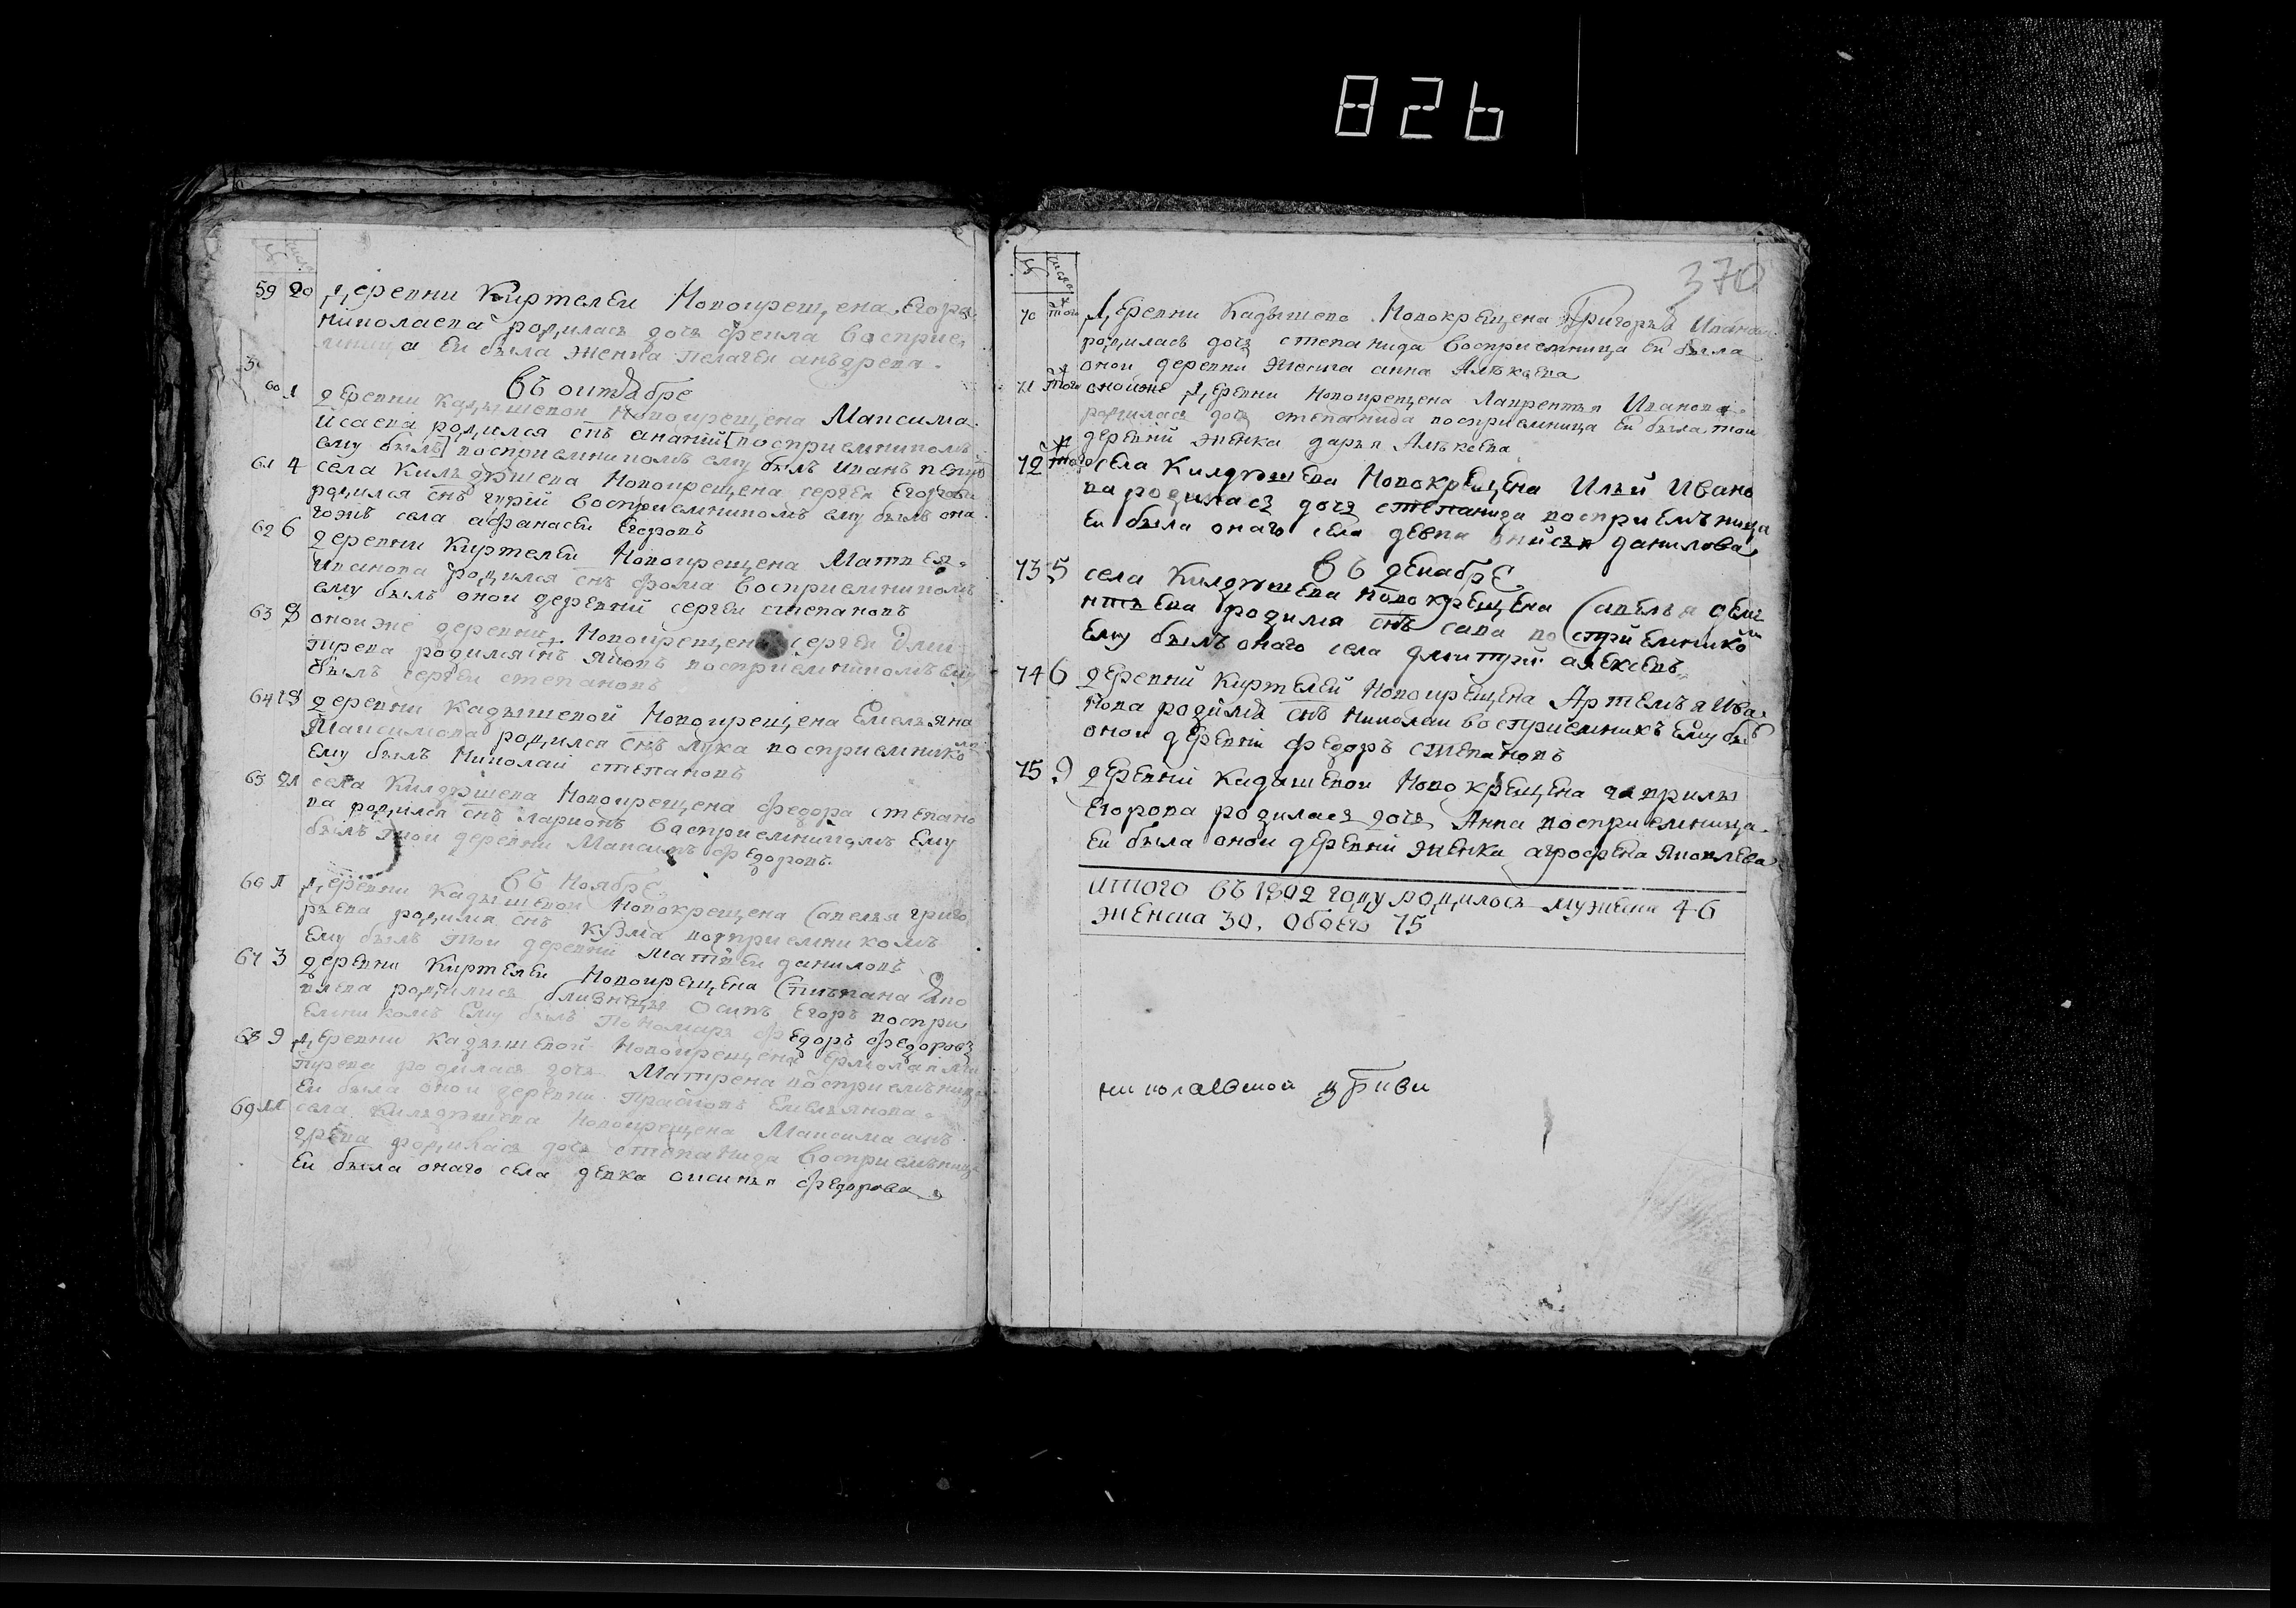 826
№ число
59 20 деревни Киртелеи Новокрещена Егора
Николаева родилась дочь Фекла восприе,
мница еи была женка Пелагеи анъдрева.
Въ октябре
60 1 деревни кадышевои Новокрещена Максима
Исаева родился снъ ананий [восприемникомъ
ему былъ] восприемникомъ ему былъ Иванъ
61 4 села Килъдюшева Новокрещена сергея Егорова
родился снъ гурий восприемникомъ ему былъ она
гожъ села афанасеи Егоровъ
62 6 деревни Киртелеи Новокрещена Матвея
Иванова родился снъ фома восприемникомъ
ему былъ онои деревний сергеи степановъ
63 8 оноиже деревни Новокрещена сергея Дми
трева родился снъ Яковъ восприемникомъ ему
былъ сергеи степановъ
64 18 деревни кадышевой Новокрещена Емельяна
Максимова родился снъ лука восприемникомъ
ему былъ Николаи степановъ
65 21 села Килдюшева Новокрещена федора степано
ва родился снъ ларионъ восприемникомъ Ему
былъ тои деревни Максимъ федоровъ.
Въ Ноябре
66 1 деревни Кадышевои Новокрещена Савелья григо
рьева родился снъ Кузма восприемникомъ
Ему былъ тои деревний Матвеи даниловъ
67 3 деревни Киртелеи Новокрещена Стиепана Яко
влева родились близнецы Осипъ Егоръ воспри
емникомъ Ему былъ Пономаръ федоръ федоровъ
68 9 деревни кадышевой Новокрещена Ермолая Дми
трева родилась дочь Матрена восприемъница
Еи была онои деревни Емельянова.
69 11 села Килъдюшева Новокрещена Максима анъ
древа родилась дочь степанида восприемъница
Еи была онаго села девка федорова
№ число
370
70 тогож Деревни Кадышево Новокрещена Григорья Иванова
родилась дочь степанида восприемница Еи была
онои деревни женка анна Алъксева
71 тогож оноиже Деревни Новокрещена Лаврентья Иванова
родилась дочь степанида восприемница Еи была тои
деревний женка дарья Алъксева
72 тогож села Килдюшева Новокрещена Ильи Ивано
ва родилась дочь степанида восприемъница
Еи была онаго села девка данилова
Въ декабре
73 5 села Килдюшева Новокрещена Савелья
родился снъ сава востприемникомъ
Ему былъ онаго села дмитрий алексевъ
74 6 деревний Киртелей Новокрещена Артемъя Ива
нова родился снъ Николаи востприемникъ Ему былъ
онои деревний федоръ степановъ
75 9 деревний Кадышевои Новокрещена гаврилы
Егорова родилась дочь Анна восприемница
Еи была онои деревний женка агрофена Яковлева
итого въ 1802 году родилось мужеска 46
женска 30. обоего 75
николаевской цркви